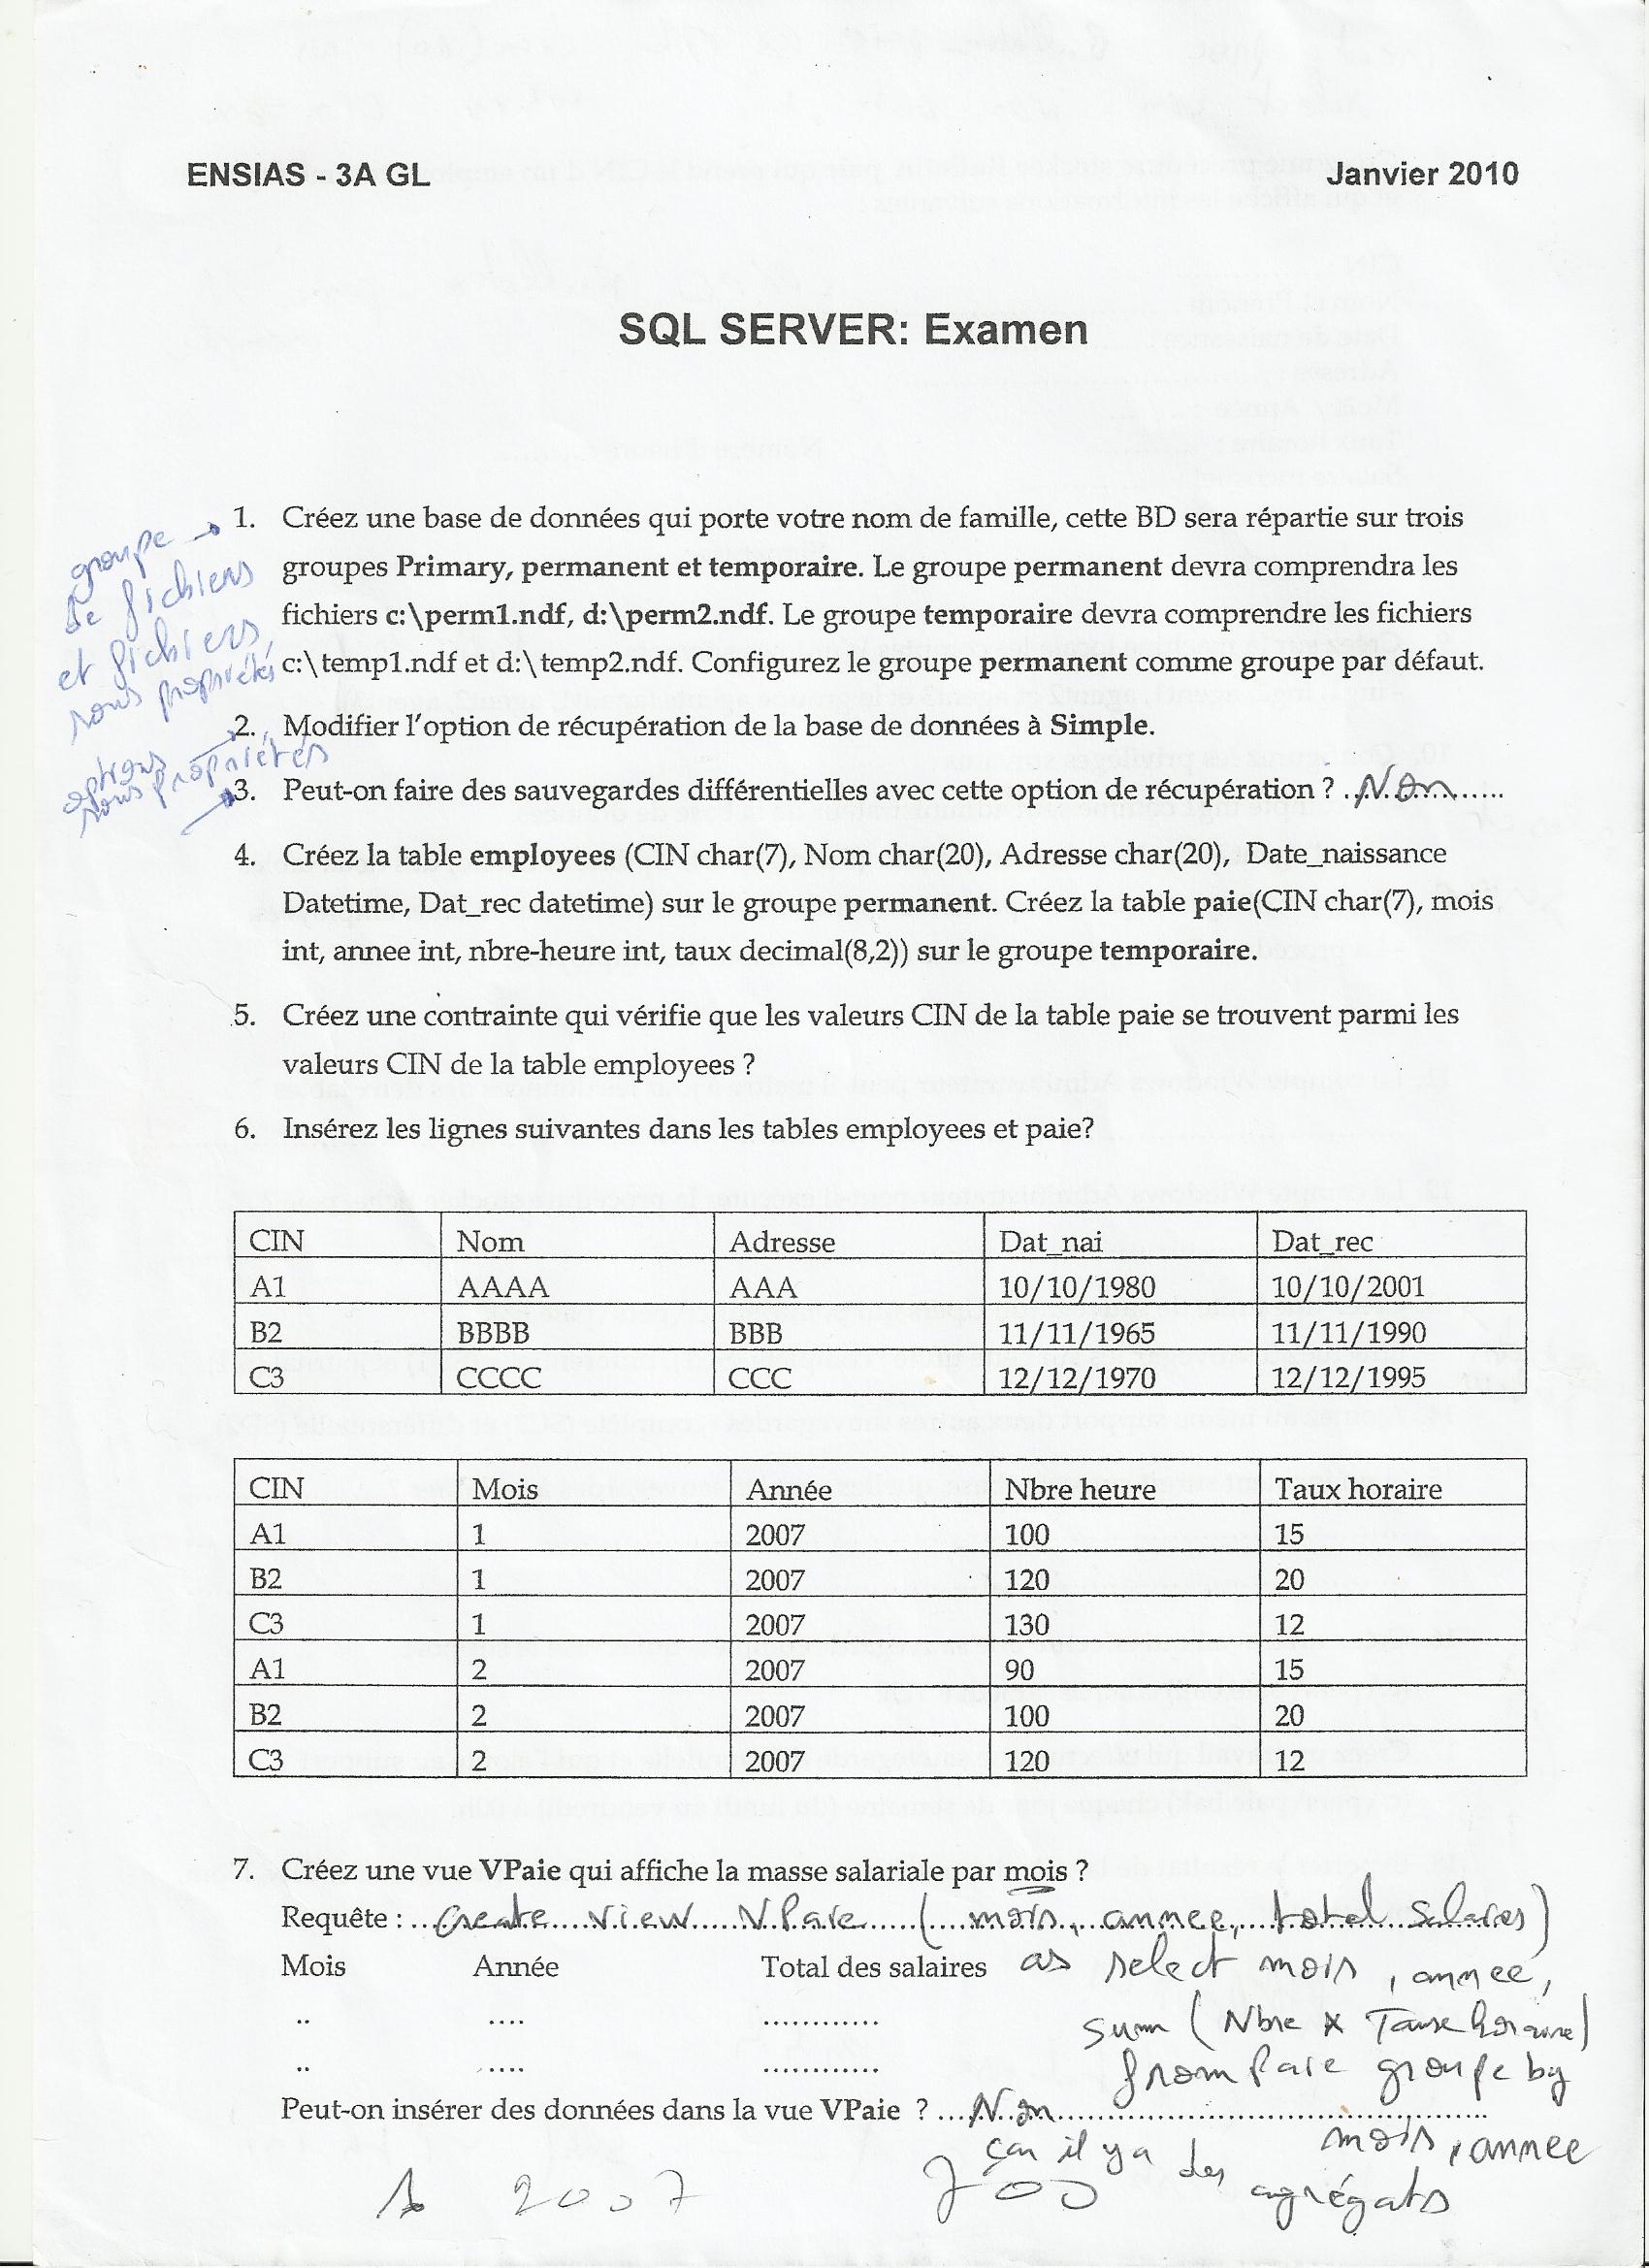 ENSIAS - 3A GL Janvier 2010
SQL SERVER: Examen
groupe
de fichiers
et fichiers
sous propriétés
1. Créez une base de données qui porte votre nom de famille, cette BD sera répartie sur trois
groupes Primary, permanent et temporaire. Le groupe permanent devra comprendra les
fichiers c:\perm1.ndf, d:\perm2.ndf. Le groupe temporaire devra comprendre les fichiers
c:\temp1.ndf et d:\temp2.ndf. Configurez le groupe permanent comme groupe par défaut.
options
sous propriétés
2. Modifier l'option de récupération de la base de données à Simple.
3. Peut-on faire des sauvegardes différentielles avec cette option de récupération ? ..Non........
4. Créez la table employees (CIN char(7), Nom char(20), Adresse char(20), Date_naissance
Datetime, Dat_rec datetime) sur le groupe permanent. Créez la table paie(CIN char(7), mois
int, annee int, nbre-heure int, taux decimal(8,2)) sur le groupe temporaire.
5. Créez une contrainte qui vérifie que les valeurs CIN de la table paie se trouvent parmi les
valeurs CIN de la table employees ?
6. Insérez les lignes suivantes dans les tables employees et paie?
CIN Nom Adresse Dat_nai Dat_rec
A1 AAAA AAA 10/10/1980 10/10/2001
B2 BBBB BBB 11/11/1965 11/11/1990
C3 CCCC CCC 12/12/1970 12/12/1995
CIN Mois Année Nbre heure Taux horaire
A1 1 2007 100 15
B2 1 2007 120 20
C3 1 2007 130 12
A1 2 2007 90 15
B2 2 2007 100 20
C3 2 2007 120 12
7. Créez une vue VPaie qui affiche la masse salariale par mois ?
Requête : ...Create view VPaie (mois, annee, total salaires)
Mois Année Total des salaires as select mois, annee,
.. .... ............ sum (Nbre x Taux horaire)
.. .... ............ from Paie groupe by
mois, annee
Peut-on insérer des données dans la vue VPaie ? ...Non...
car il y a des agrégats
1 2007 700